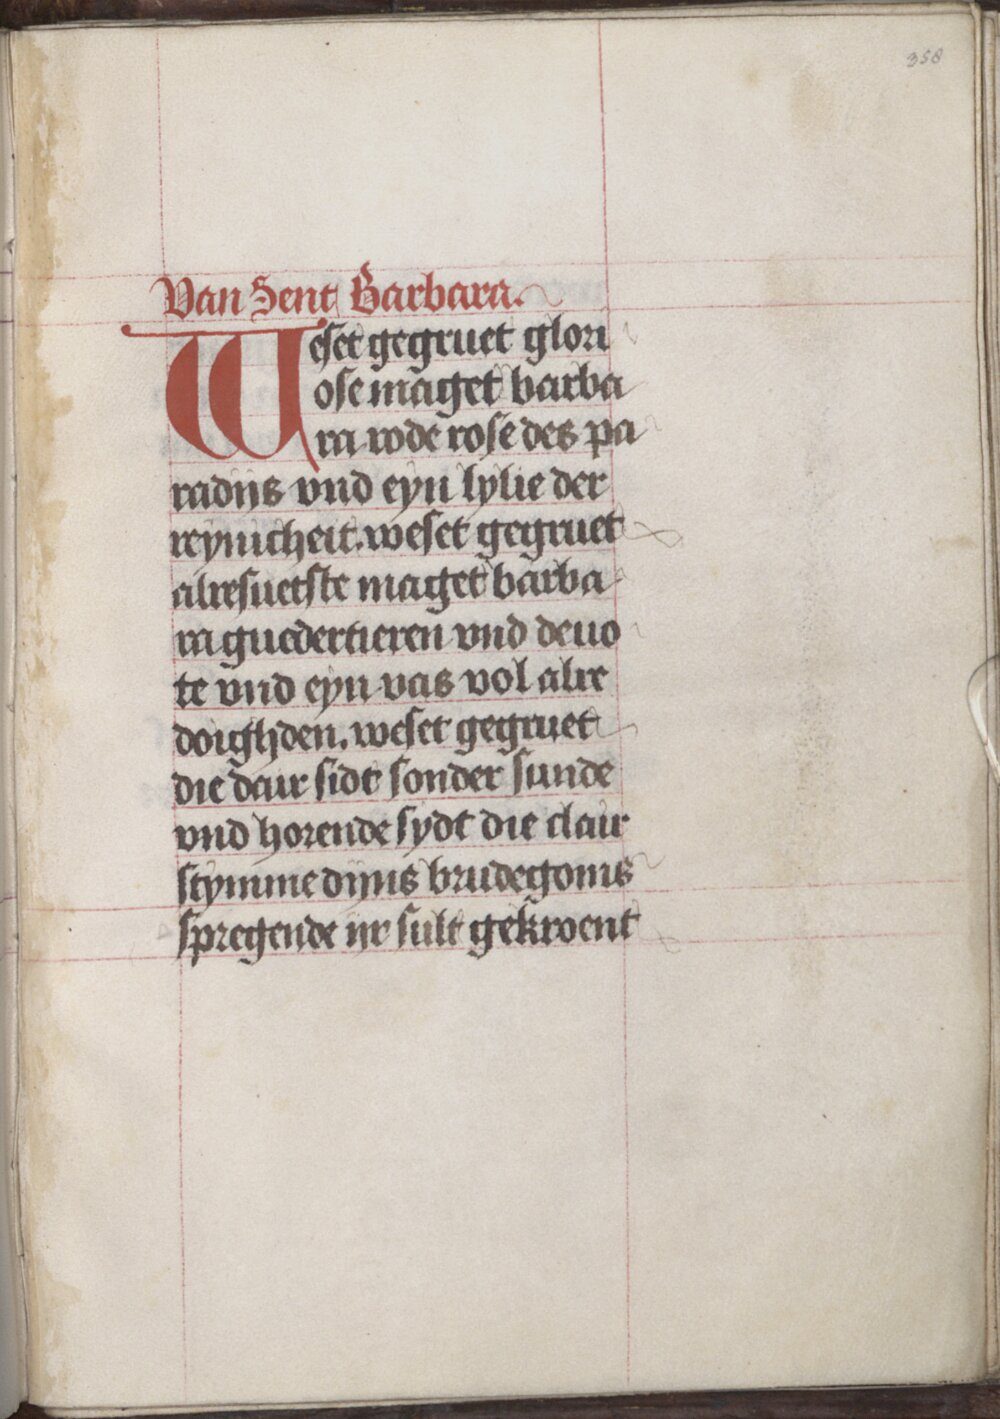 358
Van Sent Barbara.
Weset gegruet glori
ose maget barba
ra rode rose des pa
radijs vnd eyn lylie der
reynicheit. weset gegruet
alresuetste maget barba
ra guedertieren vnd deuo
te vnd eyn vas vol alre
doighden. weset gegruet
die daur sidt sonder sunde
vnd horende sydt die claur
stymme dijns brudegoms
spregende ijr sult gekroent